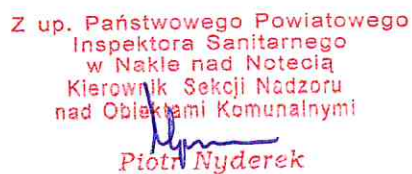 Z up. Państwowego Powiatowego
Inspektora Sanitarnego
w Nakle nad Notecią
Kierownik Sekcji Nadzoru
nad Obiektami Komunalnymi
Piotr Nyderek